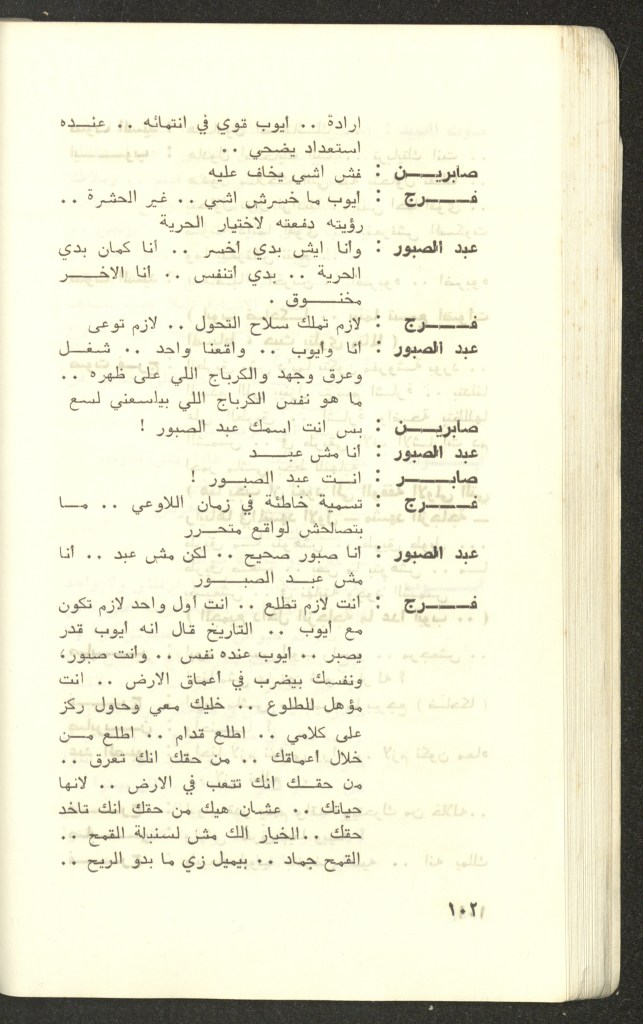 ارادة .. ايوب قوي في انتمائه .. عنده
استعداد يضحي ..
صابرين : فش اشي يخاف عليه
فرج : ايوب ما خسرش اشي .. غير الحشرة ..
رؤيته دفعته لاختيار الحرية
عبد الصبور : وانا ايش بدي اخسر .. انا كمان بدي
الحرية .. بدي اتنفس .. انا الاخر
مخنوق .
فرج : لازم تملك سلاح التحول .. لازم توعى
عبد الصبور : انا وايوب .. واقعنا واحد .. شغل
وعرق وجهد والكرباج اللي على ظهره ..
ما هو نفس الكرباج اللي بيلسعني لسع
صابرين : بس انت اسمك عبد الصبور !
عبد الصبور : انا مش عبد
صابر : انت عبد الصبور !
فرج : تسمية خاطئة في زمان اللاوعي .. ما
بتصلحش لواقع متحرر
عبد الصبور : انا صبور صحيح .. لكن مش عبد .. انا
مش عبد الصبور
فرج : انت لازم تطلع .. انت اول واحد لازم تكون
مع ايوب .. التاريخ قال انه ايوب قدر
يصبر .. ايوب عنده نفس .. وانت صبور،
ونفسك بيضرب في أعماق الارض .. انت
مؤهل للطلوع .. خليك معي وحاول ركز
على كلامي .. اطلع قدام .. اطلع من
خلال أعماقك .. من حقك انك تعرق ..
من حقك انك تتعب في الارض .. لانها
حياتك .. عشان هيك من حقك انك تاخد
حقك .. الخيار الك مش لسنبلة القمح ..
القمح جماد .. بيميل زي ما بدو الريح ..
١٠٢